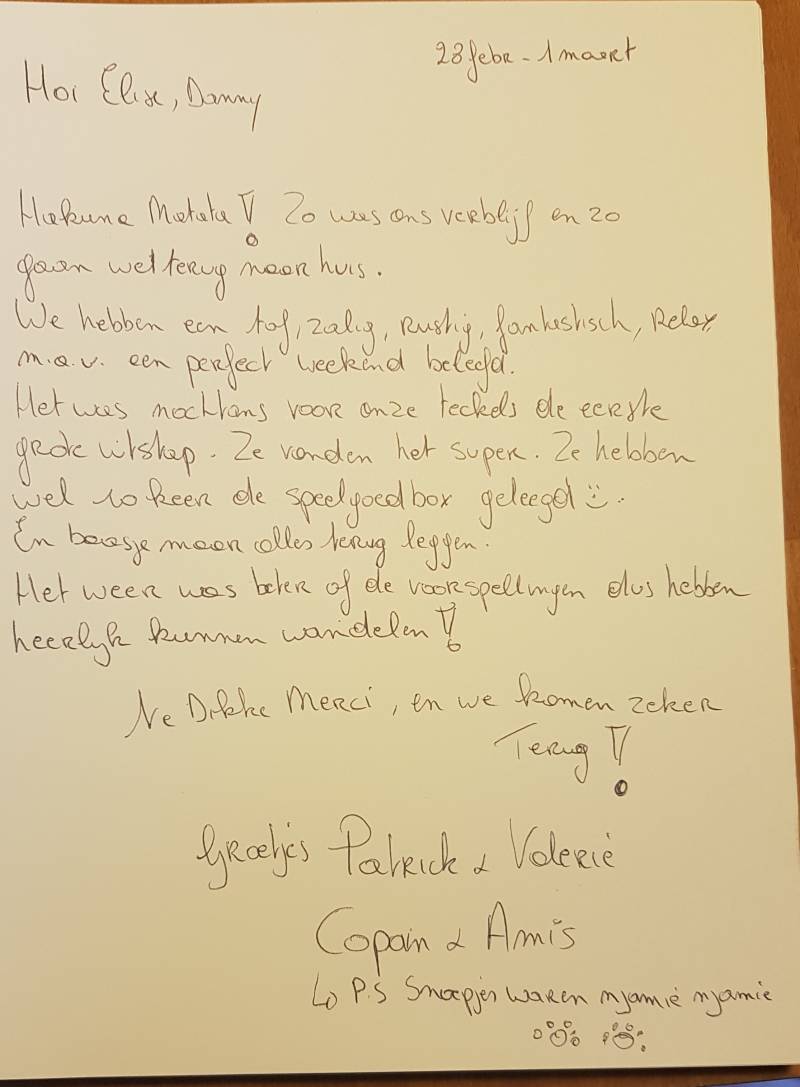 28 febr - 1 maart
Hoi Elise, Danny
Hakuna Matata ! Zo was ons verblijf en zo
gaan wel terug naar huis.
We hebben een tof, zalig, rustig, fantastisch, relax
m.a.v. een perfect weekend beleefd.
Het was nochtans voor onze teckels de eerste
grote uitstap. Ze vonden het super. Ze hebben
wel 10 keer de speelgoedbox geleegd :).
En baasje maar alles terug leggen.
Het weer was beter of de voorspellingen dus hebben
heerlijk kunnen wandelen !
Ne Dikke Merci, en we komen zeker
Terug !
Groetjes Patrick & Valerie
Copain & Amis
↳ P.S Snoepjes waren njamie njamie